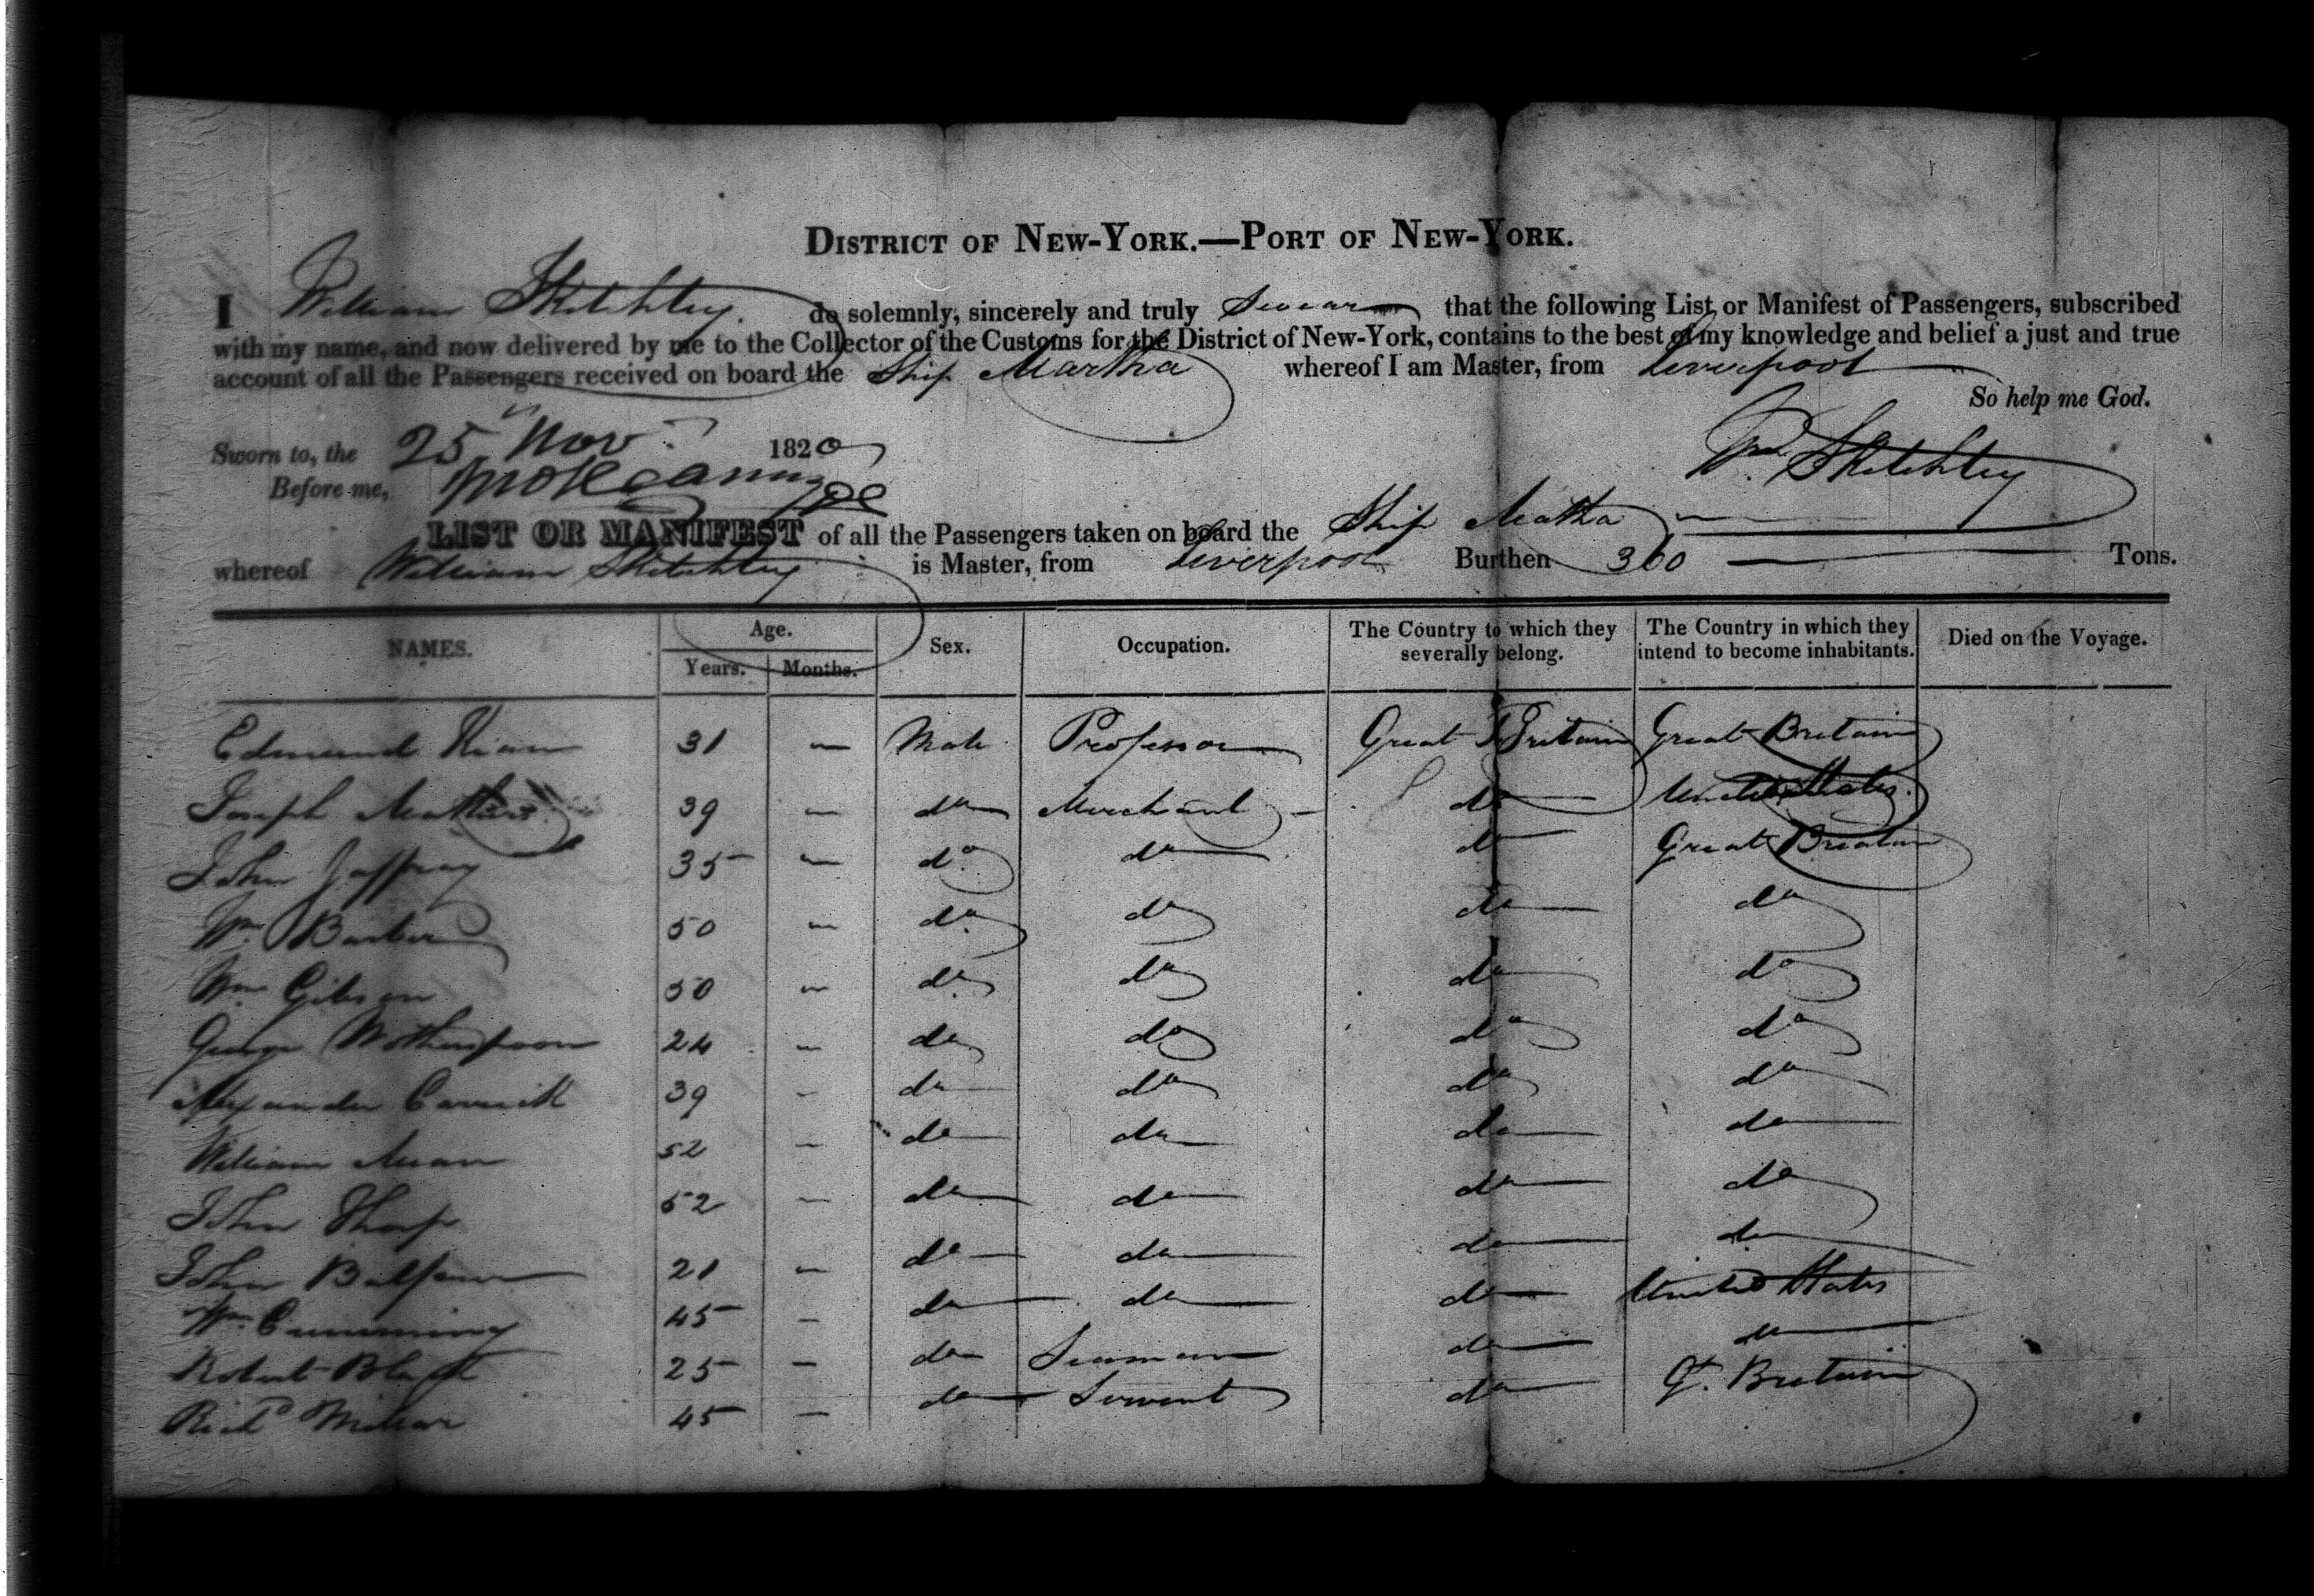 DISTRICT OF NEW-YORK.—PORT OF NEW-YORK.
I William Sketchley. do solemnly, sincerely and truly Swear that the following List or Manifest of Passengers, subscribed
with my name, and now delivered by me to the Collector of the Customs for the District of New-York, contains to the best of my knowledge and belief a just and true
account of all the Passengers received on board the Ship Martha whereof I am Master, from Liverpool
So help me God.
Sworn to, the 25 Nov 1820
Wm. Sketchley
Before me,
LIST OR MANIFEST of all the Passengers taken on board the Ship Matha
whereof William Sketchley is Master, from Liverpool Burthen 360 Tons.
NAMES. Age. Years. Months. Sex. Occupation. The Country to which they severally belong. The Country in which they intend to become inhabitants. Died on the Voyage.
Edmund Kean 31 — Male Professor Great Britain Great Britain
Joseph Mathers 39 — do Merchant do United States.
John Jaffray 35 — do do do Great Britain
Wm. Barber 50 — do do do do
Wm Gibson 50 — do do do do
George Wotherspoon 24 — do do do do
Alexander Carrick 39 — do do do do
William 52 — do do do do
John Thorp 52 — do do do do
John Balfour 21 — do do do do
Wm. Cumming 45 — do do do United States
Robert 25 — do Seaman do do
Richd Millar 45 — do Servent do Gt. Britain